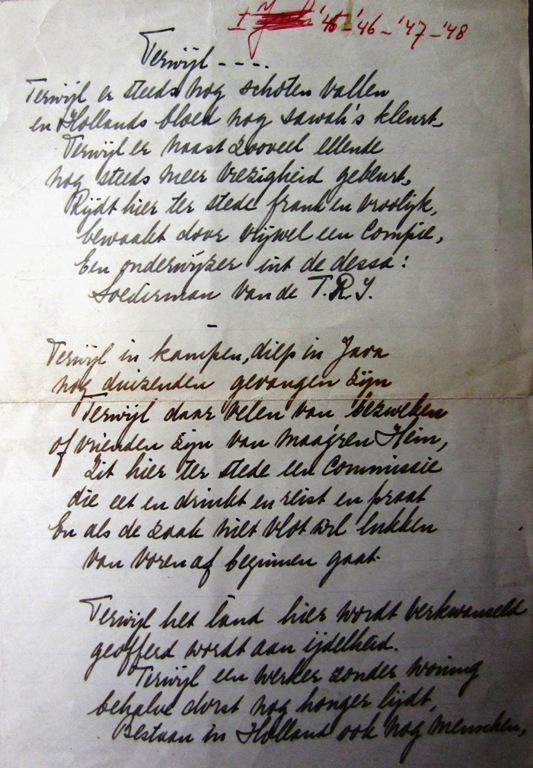 '45-'46-'47-'48
Terwijl ----
Terwijl er steeds nog schoten vallen
en Hollands bloed nog sawah's kleurt,
Terwijl er naast zooveel ellende
nog steeds meer vrezigheid gebeurt,
Rijdt hier ter stede frank en vroolijk,
bewaakt door vrijwel een Compie,
Een onderwijzer uit de dessa:
Soederman van de T.R.I.
Terwijl in kampen, diep in Java
nog duizenden gevangen zijn
Terwijl daar velen van bezweken
of vrienden zijn van maag'ren Hein,
Zit hier ter stede een Commissie
die eet en drinkt en reist en praat
En als de zaak niet vlot wil lukken
van voren af beginnen gaat.
Terwijl het land hier wordt verkwanseld
geofferd wordt aan ijdelheid.
Terwijl een werker zonder woning
behalve dorst nog honger lijdt,
Bestaan in Holland ook nog menschen,